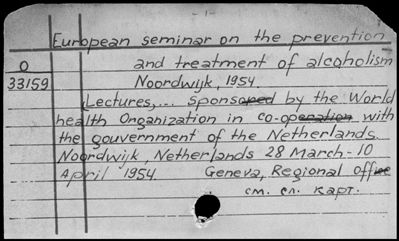 - 1 -
European seminar on the prevention
O and treatment of alcoholism
33159 Noordwijk, 1954
Lectures,... sponsored by the World
health Organization in co-operation with
the gouvernment of the Netherlands
Noordwijk, Netherlands 28 March-10
April 1954 Geneva, Regional office
см. сл. карт.